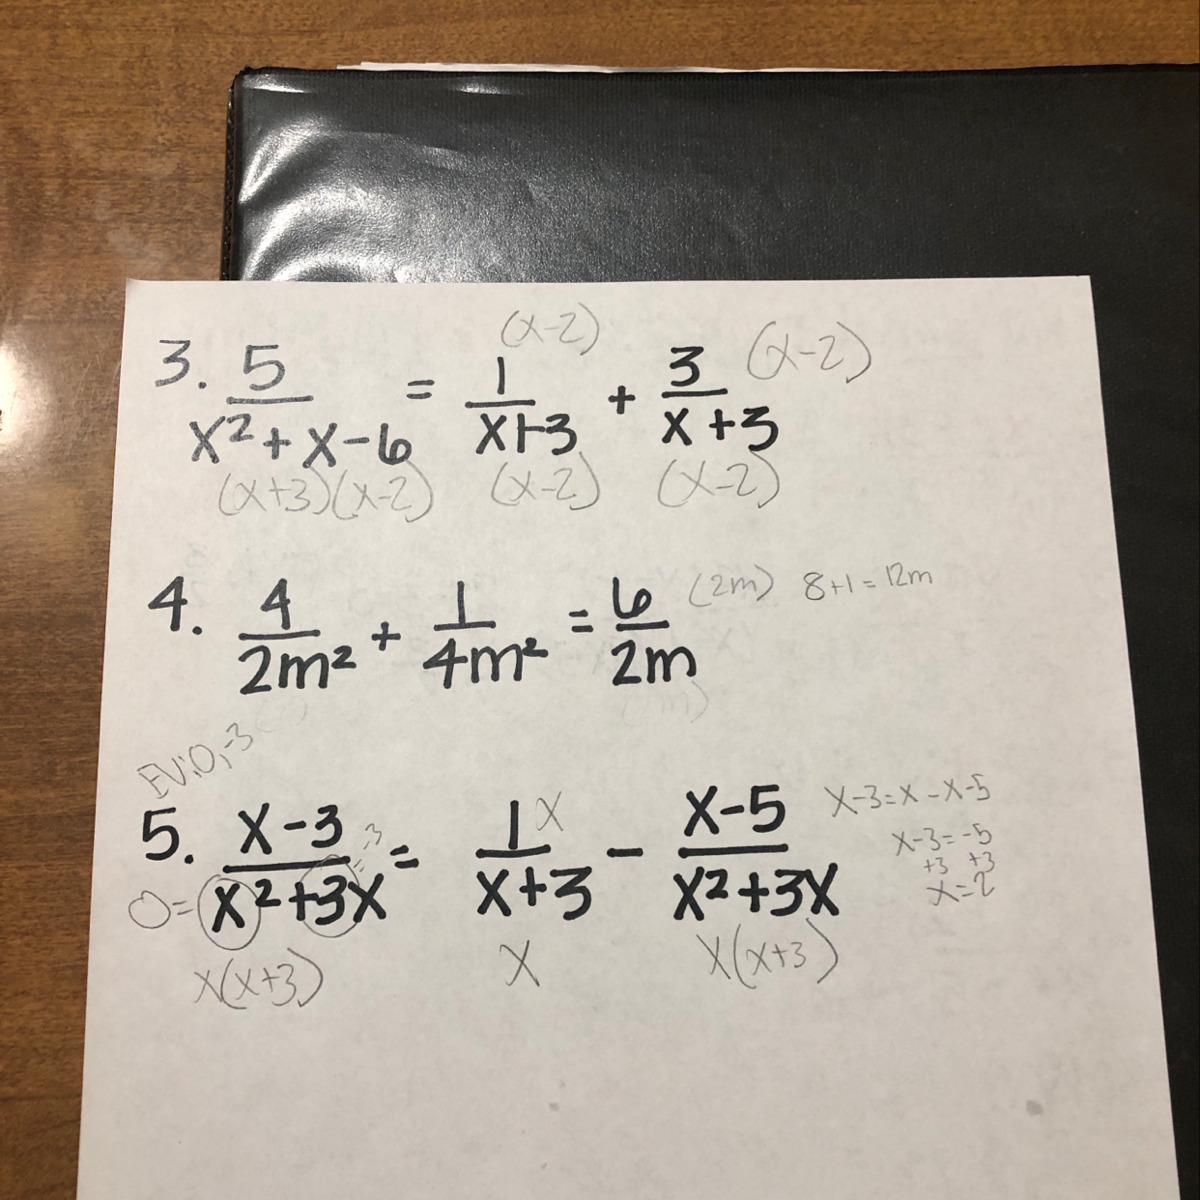 (x-2)
3. 5/(x²+x-6) = 1/(x+3) + 3/(x+3) (x-2)
(x+3)(x-2) (x-2) (x-2)
4. 4/2m² + 1/4m² = 6/2m (2m) 8+1=12m
EV:0,-3
5. (x-3)/(x²+3x) = 1/(x+3) x - (x-5)/(x²+3x) x-3=x-x-5
0= =-3 x-3=-5
+3 +3
x=2
x(x+3) x x(x+3)